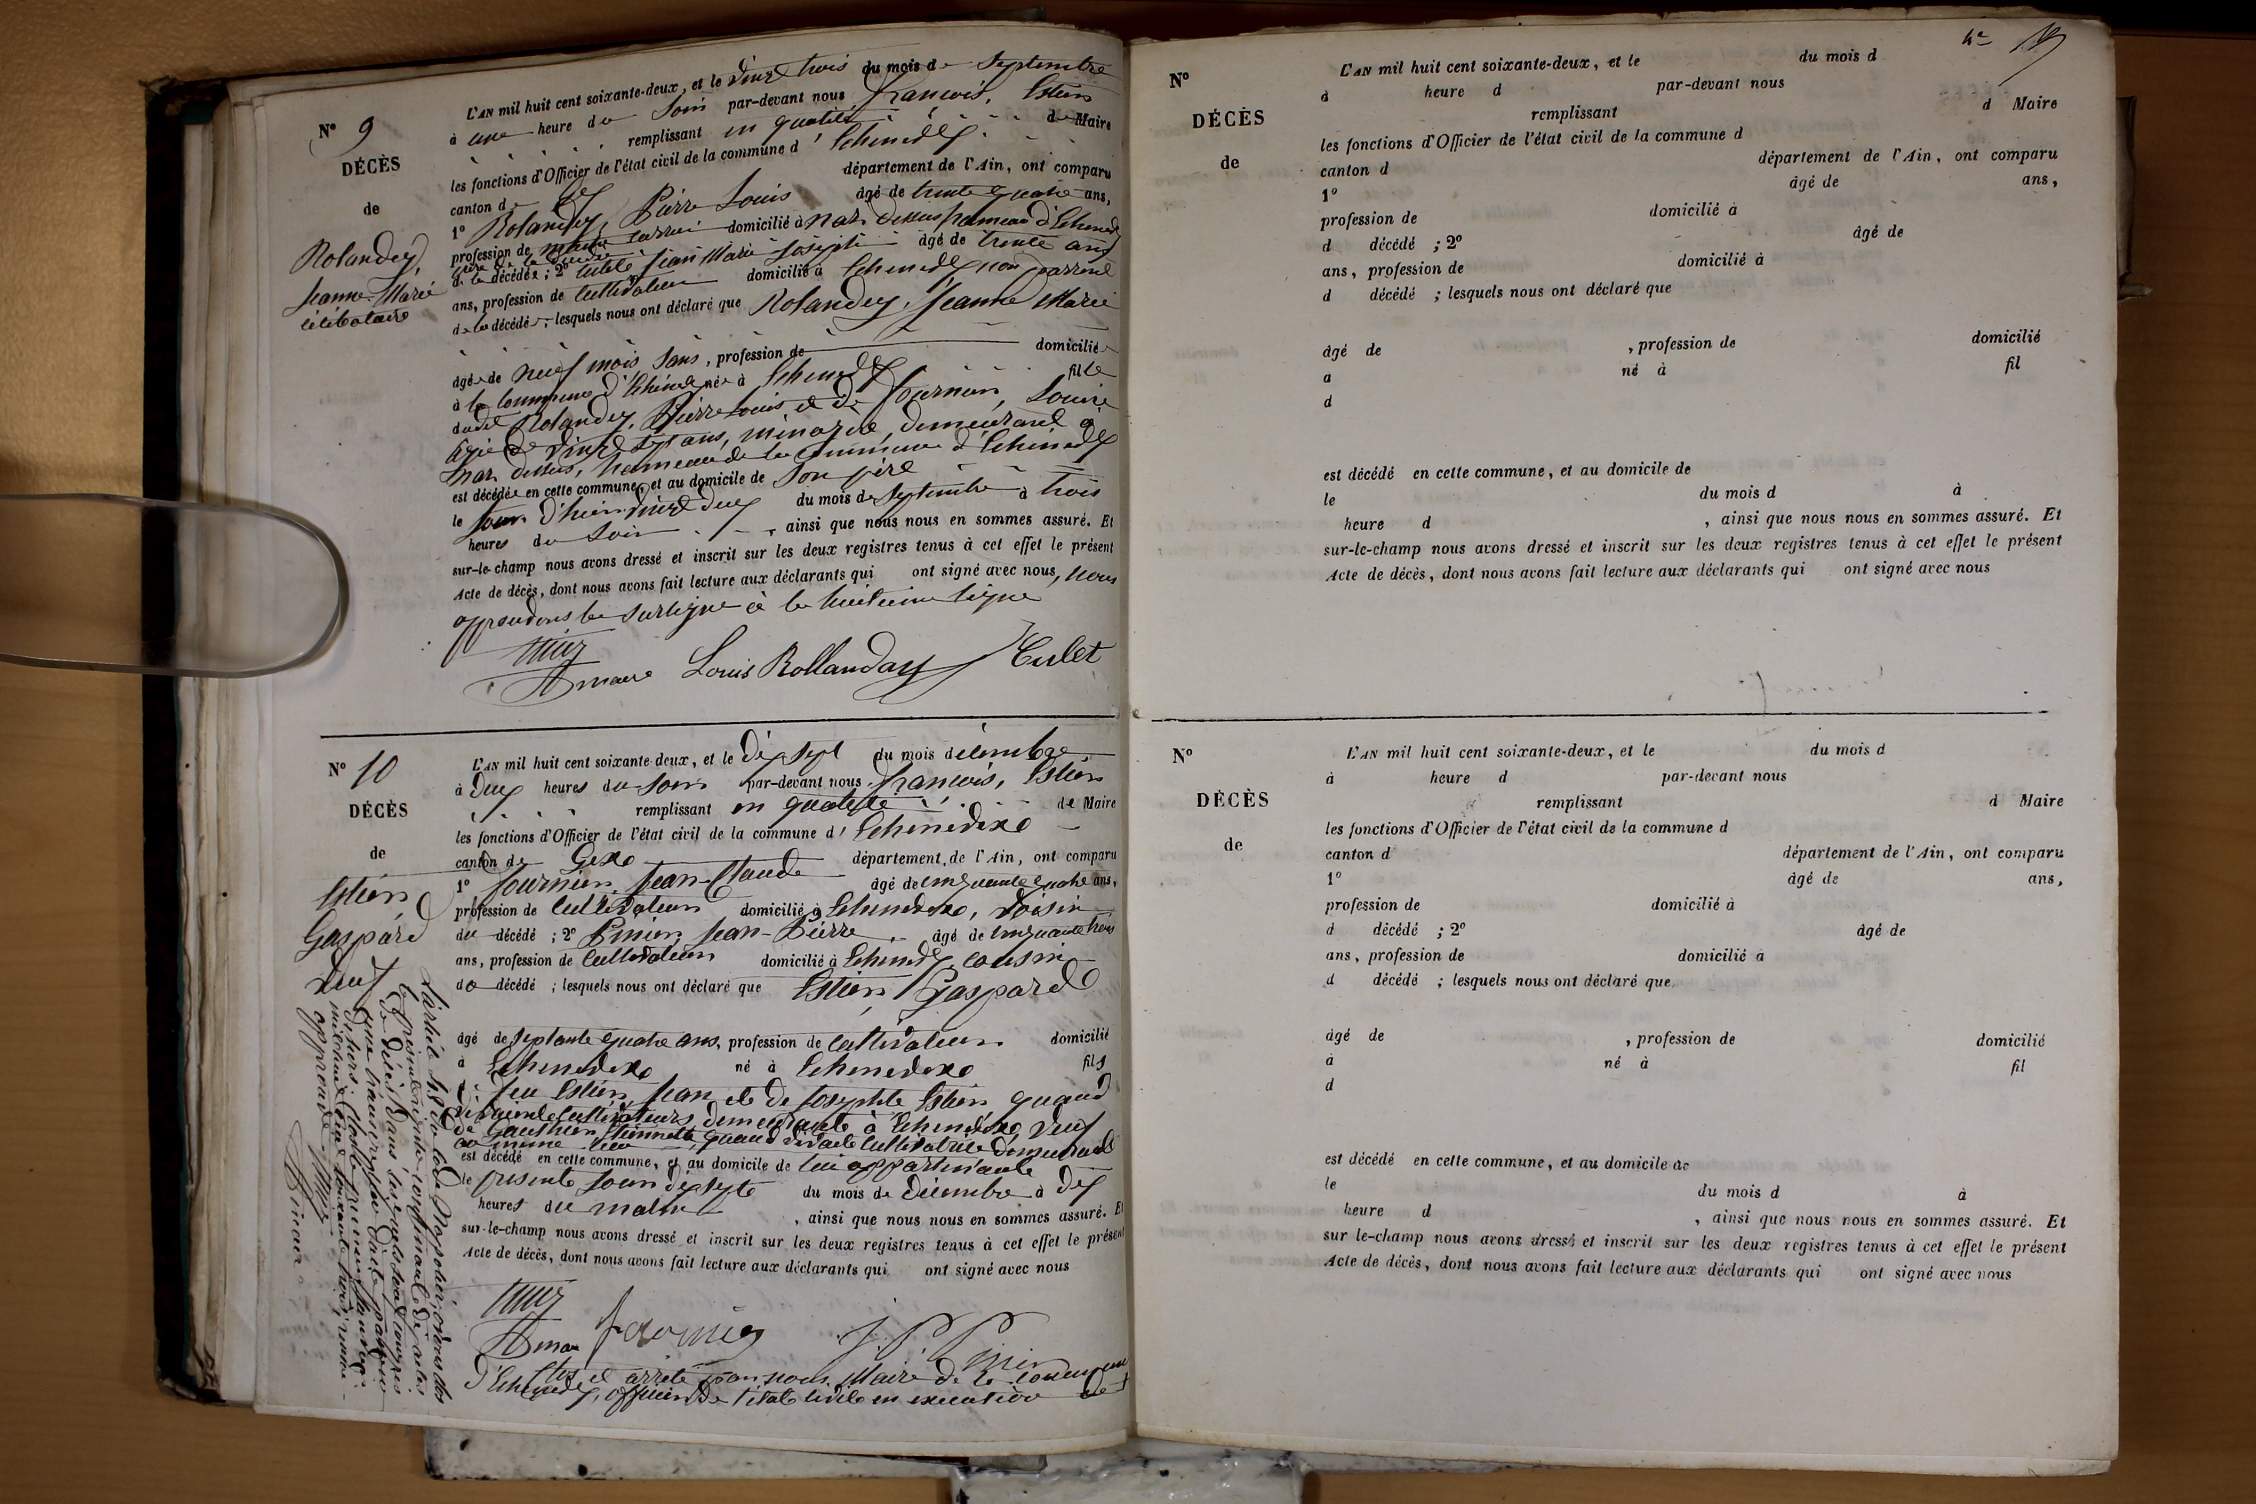 L'AN mil huit cent soixante-deux, et le vingt trois du mois de Septembre
à une heure du soir par-devant nous, François, Estier
remplissant en qualité de Maire
N° 9
les fonctions d'Officier de l'état civil de la commune d'Echenedex
DÉCÈS
canton de Gex département de l'Ain, ont comparu
de
1° Rolandey, Pierre Louis âgé de trente quatre ans,
Rolandey,
Jeanne-Marie
célibataire
profession de domicilié à Naz dessus hameau d'Echenedex
père de la décédée
de la décédée ; 2° Culet Jean Marie Joseph âgé de trente ans
ans, profession de cultivateur domicilié à Echenedex non parent
de la décédée ; lesquels nous ont déclaré que Rolandey, Jeanne Marie
âgée de neuf mois, sans, profession de domicilié
à la commune d'Echenedex née à Echenedex fille
dudit Rolandey, Pierre Louis et de Fournier, Louise
âgée de vingt sept ans, ménagère, demeurant à
Naz dessus, hameau de la commune d'Echenedex
est décédée en cette commune, et au domicile de son père
le jour d'hier vingt deux du mois de Septembre à trois
heures du soir , ainsi que nous nous en sommes assuré. Et
sur-le-champ nous avons dressé et inscrit sur les deux registres tenus à cet effet le présent
Acte de décès, dont nous avons fait lecture aux déclarants qui ont signé avec nous, nous
approuvons la surligne à la huitième ligne
maire Louis Rollanday JCulet
N° 10
DÉCÈS
de
Estier
Gaspard
veuf
L'AN mil huit cent soixante-deux, et le dix sept du mois décembre
à deux heures du soir par-devant nous, François, Estier
remplissant en qualité de Maire
les fonctions d'Officier de l'état civil de la commune d'Echenedexe
canton de Gexe département de l'Ain, ont comparu
1° Fournier, Jean-Claude âgé de cinquante quatre ans,
profession de cultivateur domicilié à Echenedexe, voisin
du décédé ; 2° Prinier, Jean-Pierre âgé de cinquante trois
ans, profession de cultivateur domicilié à Echenedex, cousin
du décédé ; lesquels nous ont déclaré que Estier, Gaspard
âgé de septante quatre ans, profession de cultivateur domicilié
à Echenedexe né à Echenedexe fils
de feu Estier, Jean et de Josephte Estier quand
vivaient cultivateurs, demeurants à Echenedexe, veuf
de Gauthier, Etiennette, quand vivait cultivatrice demeurant
au même lieu
est décédé en cette commune, et au domicile de lui appartenant
le présent jour dix septe du mois de décembre à dix
heures du matin , ainsi que nous nous en sommes assuré. Et
sur-le-champ nous avons dressé et inscrit sur les deux registres tenus à cet effet le présent
Acte de décès, dont nous avons fait lecture aux déclarants qui ont signé avec nous
maire Fournier J. P. Prinier
Clos et arrêté par nous, Maire de la commune
d'Echenedex, officier de l'état civil en exécution de
l'article 43 du code Napoléon, dans
le présent registre contenant dix actes
de décès
approuvé
4e
N°
DÉCÈS
de
L'AN mil huit cent soixante-deux, et le du mois d
à heure d par-devant nous
remplissant d Maire
les fonctions d'Officier de l'état civil de la commune d
canton d département de l'Ain, ont comparu
1° âgé de ans,
profession de domicilié à
d décédé ; 2° âgé de
ans, profession de domicilié à
d décédé ; lesquels nous ont déclaré que
âgé de , profession de domicilié
à né à fil
d
est décédé en cette commune, et au domicile de
le du mois d à
heure d , ainsi que nous nous en sommes assuré. Et
sur-le-champ nous avons dressé et inscrit sur les deux registres tenus à cet effet le présent
Acte de décès, dont nous avons fait lecture aux déclarants qui ont signé avec nous
N°
DÉCÈS
de
L'AN mil huit cent soixante-deux, et le du mois d
à heure d par-devant nous
remplissant d Maire
les fonctions d'Officier de l'état civil de la commune d
canton d département de l'Ain, ont comparu
1° âgé de ans,
profession de domicilié à
d décédé ; 2° âgé de
ans, profession de domicilié à
d décédé ; lesquels nous ont déclaré que
âgé de , profession de domicilié
à né à fil
d
est décédé en cette commune, et au domicile de
le du mois d à
heure d , ainsi que nous nous en sommes assuré. Et
sur-le-champ nous avons dressé et inscrit sur les deux registres tenus à cet effet le présent
Acte de décès, dont nous avons fait lecture aux déclarants qui ont signé avec nous